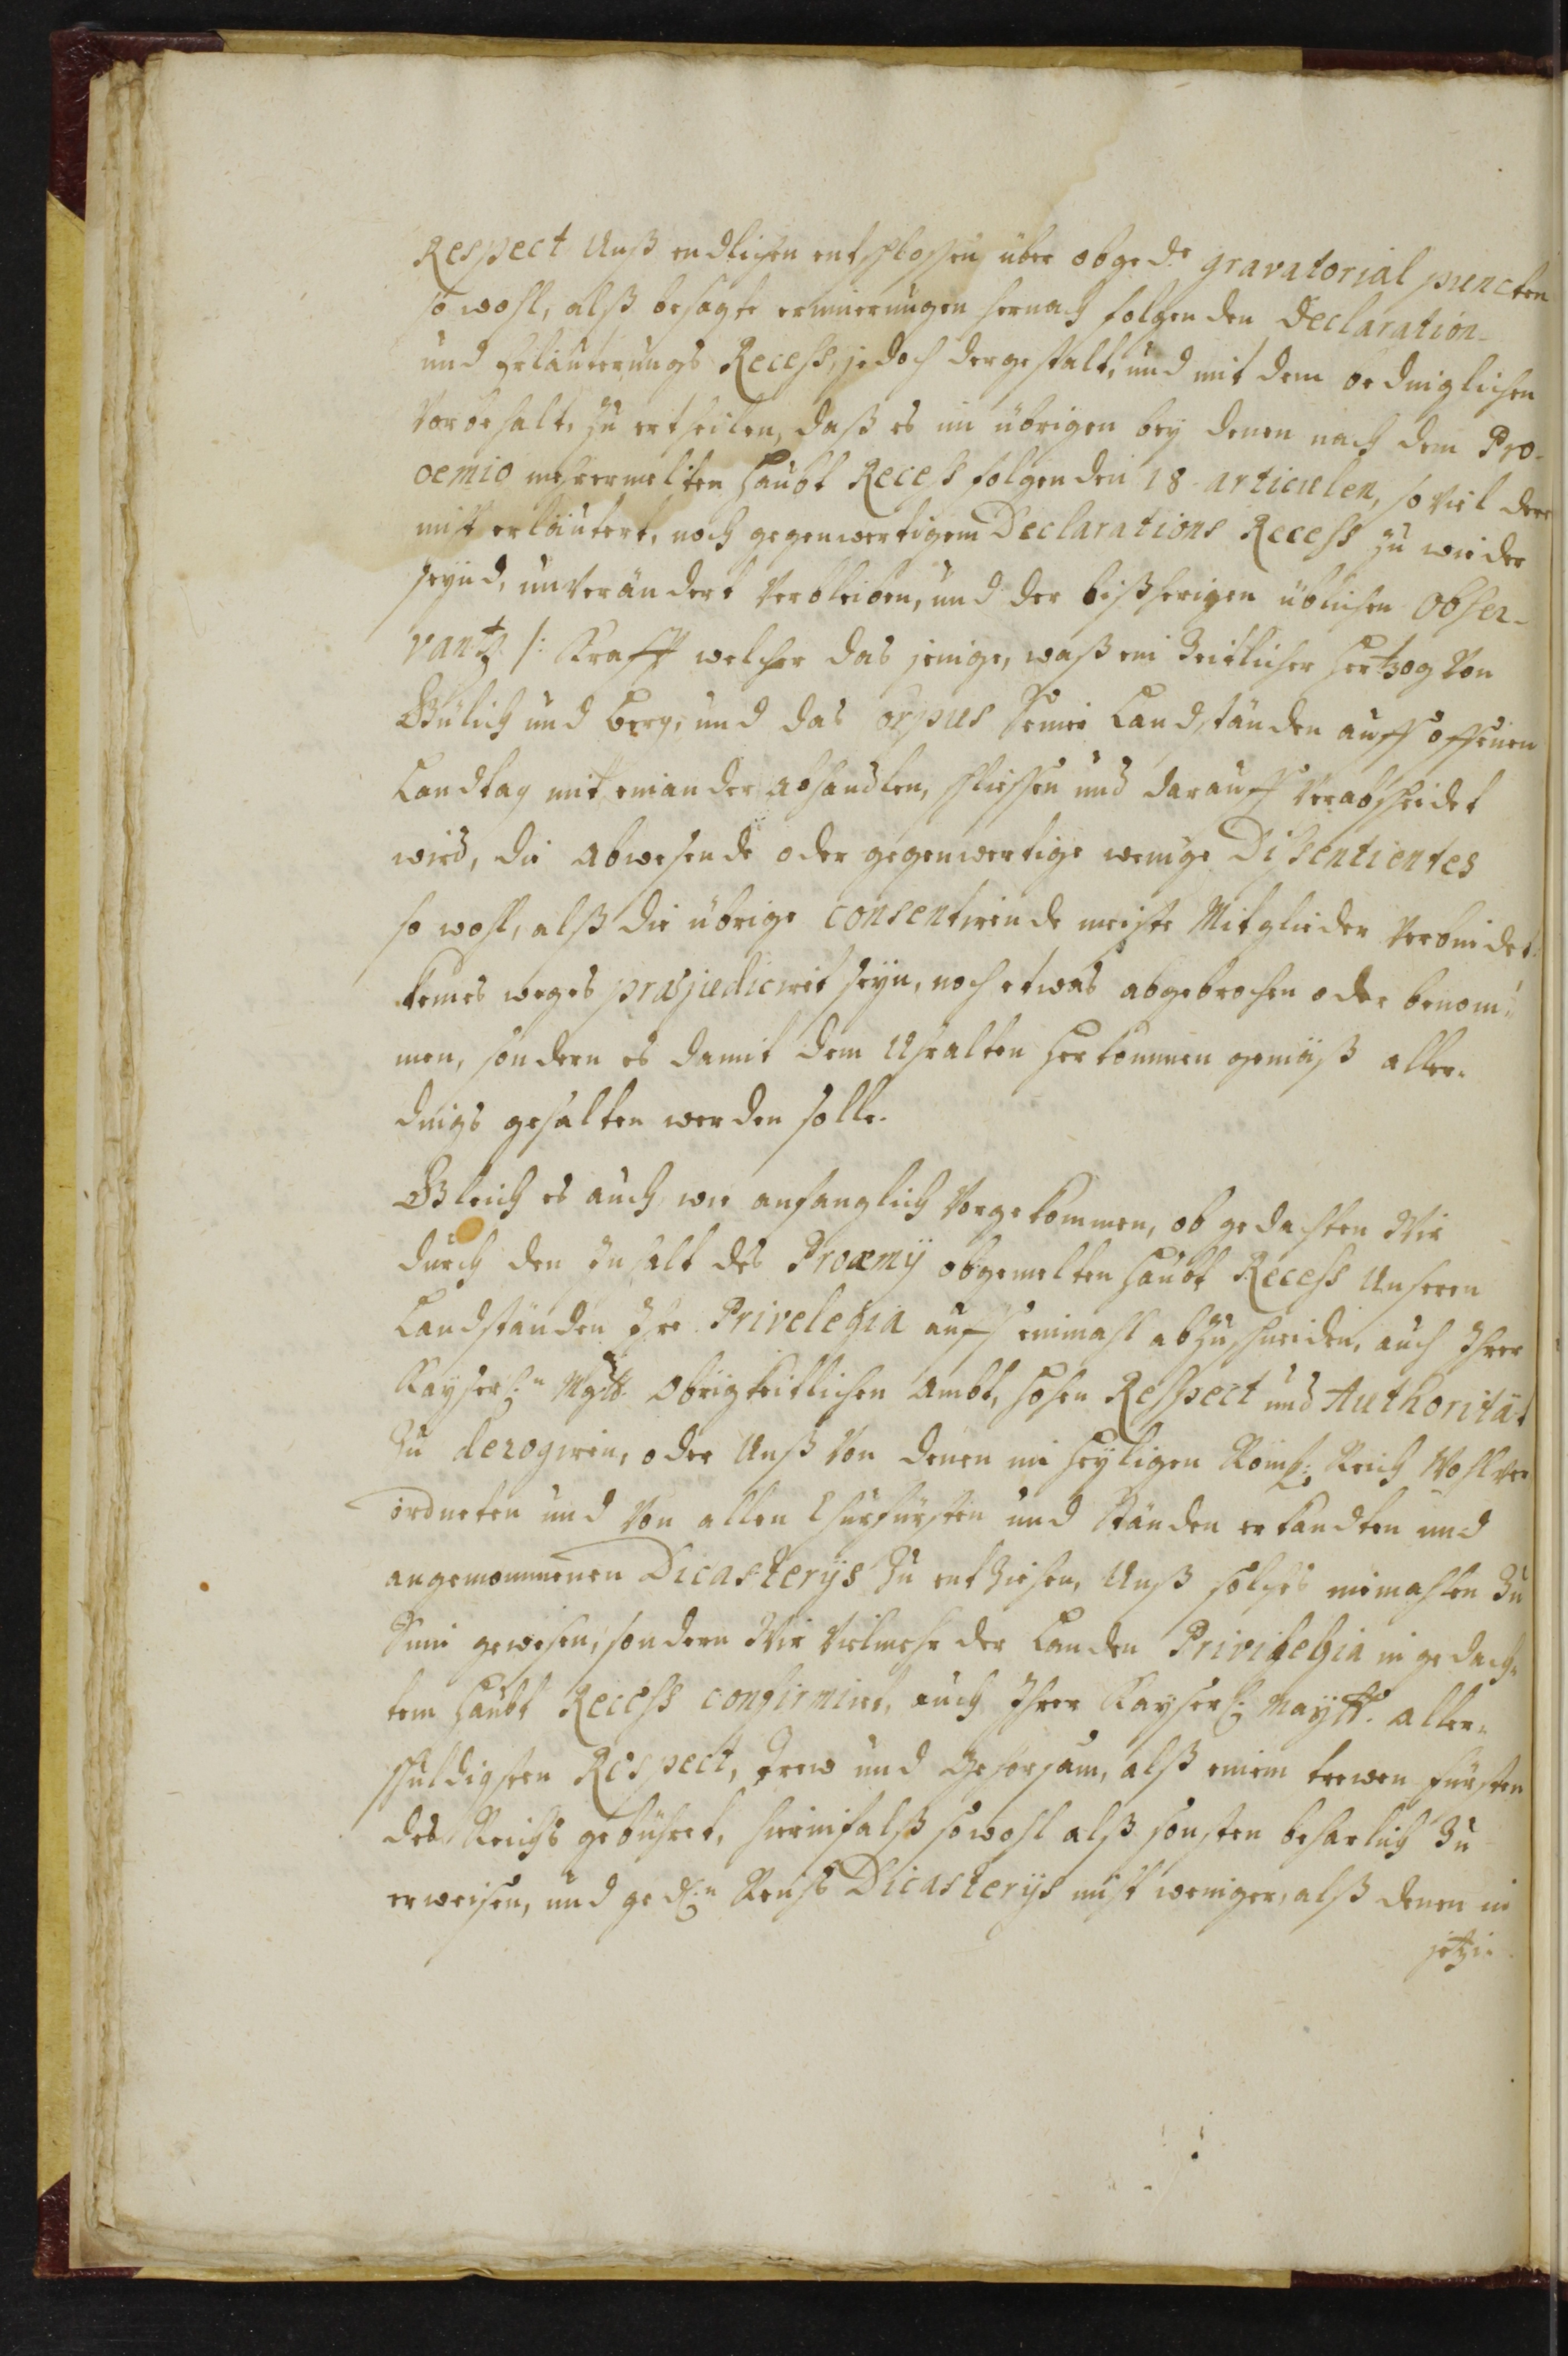 Respect Unß endlichen entschlossen über obged.te gravatorial puncten
so wohl, alß besagte erinnerungen hernach folgenden Declaration-
und Erläuterungs Recess, jedoch dergestalt, und mit dem bedinglichen
Vorbehalt, zu ertheilen, daß es im übrigen bey denen nach dem Pro-
oemio mehrermelten Haubt Recess folgenden 18 articulen, so viel deren
nit erläutert, noch gegenwertigem Declarations Recess zu wieder
seynd, unverändert verbleiben, und der bißherigen üblichen Obser-
vantz /: Krafft welcher das jenige, waß ein Zeitlicher Hertzog von
Gülich und Berg, und das Corpus Seiner Landständen auff offenen
Landtag mit einander abhandlen, schliessen und darauff verabscheidet
wird, die abwesende oder gegenwertige wenige Disentientes
so wohl, alß die übrige consentirende meiste Mitglieder verbindet :/
keines weges præjudicirt seyn, noch etwas abgebrochen oder benom-
men, sondern es damit dem Uhralten herkommen gemäß aller-
dings gehalten werden solle.
Gleich es auch, wie anfanglich vorgekommen, ob gedachten Wir
durch den Inhalt des Proœmij obgemelten Haubt Recess Unseren
Landständen Ihre Privelegia auff einmahl abzuschneiden, auch Ihrer
Kayserl:n Maytt. Obrigkeitlichen Ambt, hohen Respect und Authorität
zu derogiren, oder Unß von denen im heyligen Römis: Reich Wohl ver
ordneten und von allen Churfürsten und Ständen erkandten und
angenommenen Dicasterijs zu entziehen, Unß solches niemahlen zu
Sinn gewesen, sondern Wir vielmehr der Landen Privilegia in gedach-
tem Haubt Recess confirmirt, auch Ihrer Kayserl: Maytt. aller-
schuldigsten Respect, Trew und Gehorsam, alß einem trewen Fürsten
des Reichs gebühret, hierinfalß sowohl alß sonsten beharlich zu
erweisen, und gedl:n Reichs Dicasterijs nicht weniger, alß denen in
jetzi-